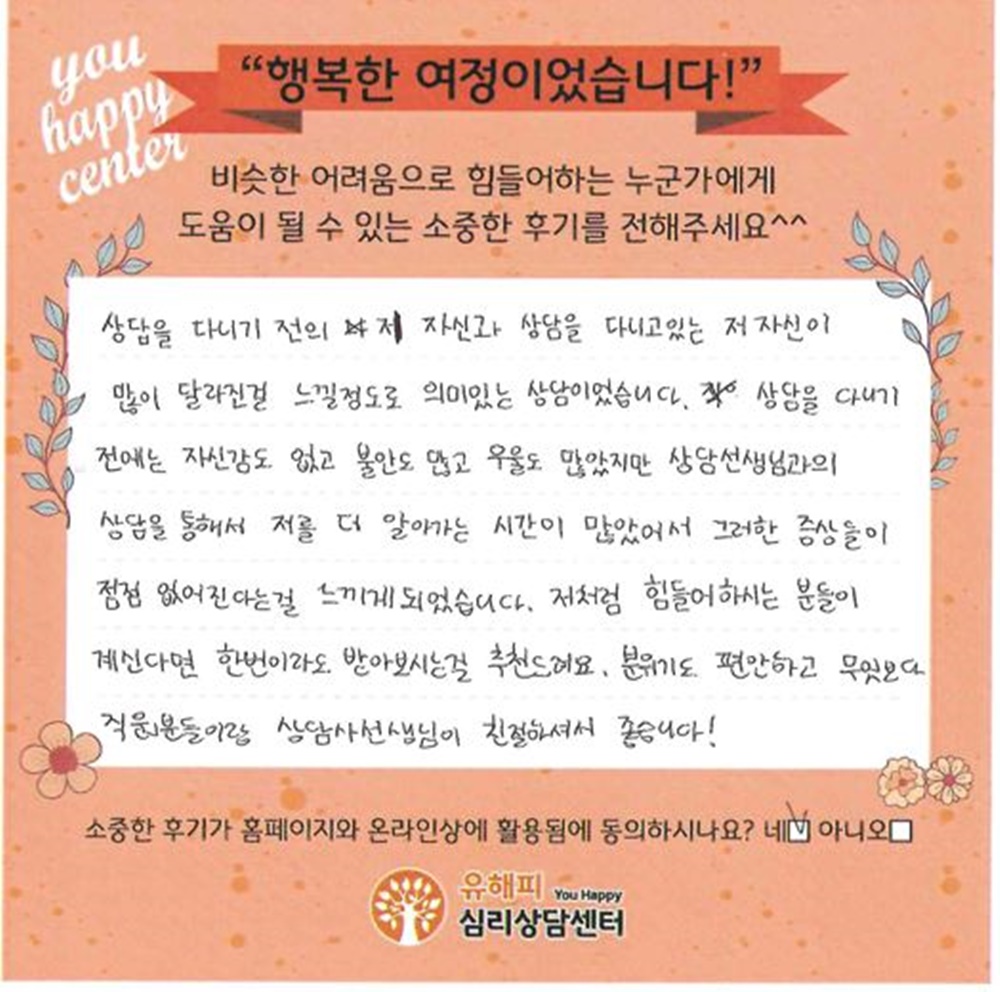 you
happy
center
“행복한 여정이었습니다!”
비슷한 어려움으로 힘들어하는 누군가에게
도움이 될 수 있는 소중한 후기를 전해주세요^^
상담을 다니기 전의 저 자신과 상담을 다니고있는 저 자신이
많이 달라진걸 느낄정도로 의미있는 상담이었습니다. 상담을 다니기
전에는 자신감도 없고 불안도 많고 우울도 많았지만 상담선생님과의
상담을 통해서 저를 더 알아가는 시간이 많았어서 그러한 증상들이
점점 없어진다는걸 느끼게되었습니다. 저처럼 힘들어하시는 분들이
계신다면 한번이라도 받아보시는걸 추천드려요. 분위기도 편안하고 무엇보다
직원분들이랑 상담사선생님이 친절하셔서 좋습니다!
소중한 후기가 홈페이지와 온라인상에 활용됨에 동의하시나요? 네☑ 아니오☐
유해피 You Happy
심리상담센터